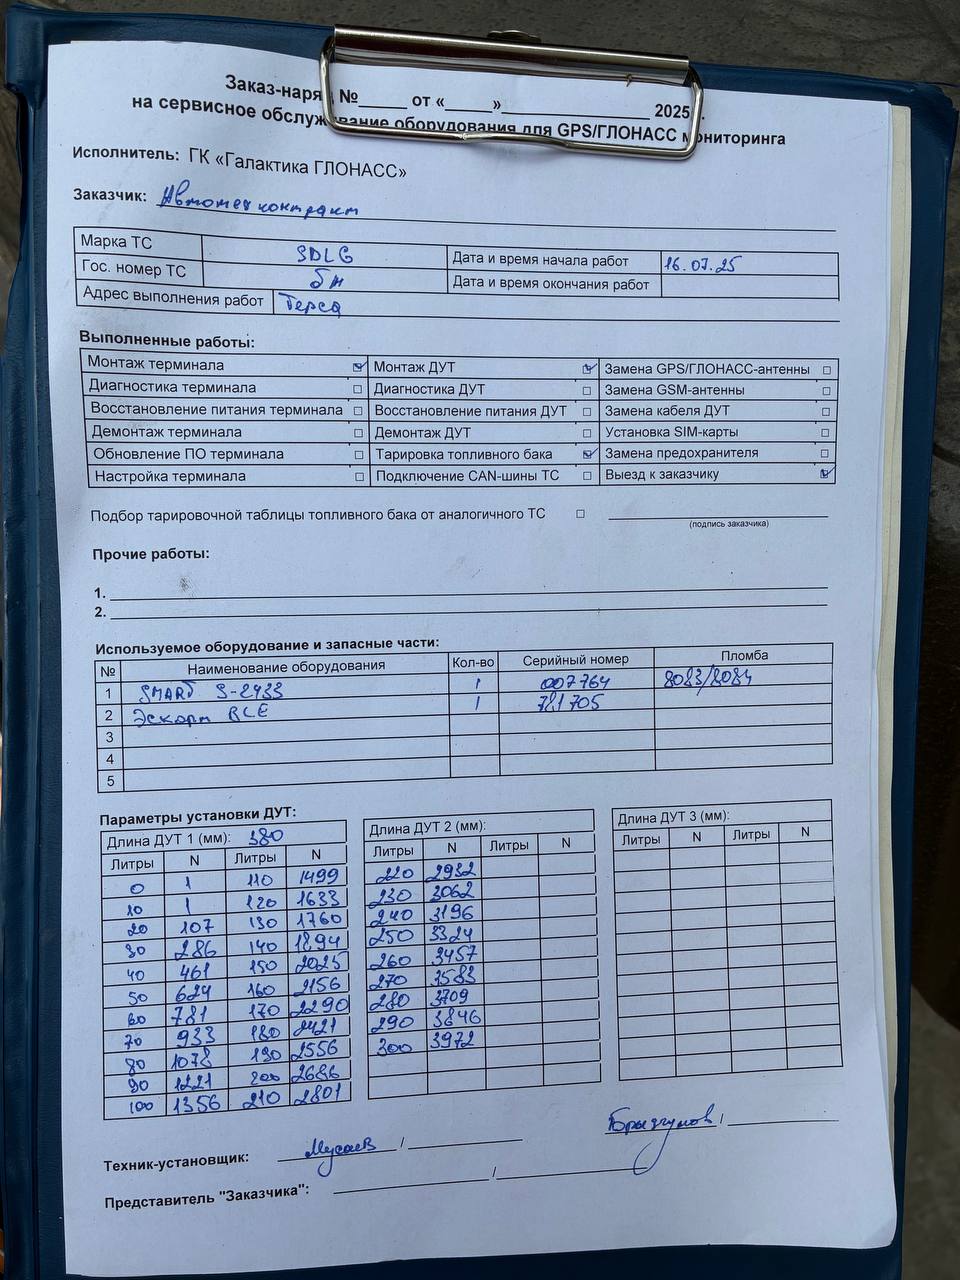 Заказ-наряд №_____ от «_____»__________________ 2025г.
на сервисное обслуживание оборудования для GPS/ГЛОНАСС мониторинга
Исполнитель: ГК «Галактика ГЛОНАСС»
Заказчик: Автотехконтракт
Марка ТС SDLG Дата и время начала работ 16.07.25
Гос. номер ТС бн Дата и время окончания работ
Адрес выполнения работ Терса
Выполненные работы:
Монтаж терминала ☑ Монтаж ДУТ ☑ Замена GPS/ГЛОНАСС-антенны ☐
Диагностика терминала ☐ Диагностика ДУТ ☐ Замена GSM-антенны ☐
Восстановление питания терминала ☐ Восстановление питания ДУТ ☐ Замена кабеля ДУТ ☐
Демонтаж терминала ☐ Демонтаж ДУТ ☐ Установка SIM-карты ☐
Обновление ПО терминала ☐ Тарировка топливного бака ☑ Замена предохранителя ☐
Настройка терминала ☐ Подключение CAN-шины ТС ☐ Выезд к заказчику ☑
Подбор тарировочной таблицы топливного бака от аналогичного ТС ☐
(подпись заказчика)
Прочие работы:
1.
2.
Используемое оборудование и запасные части:
№ Наименование оборудования Кол-во Серийный номер Пломба
1 SMART S-2433 1 007764 8083/8084
2 Эскорт BLE 1 781705
3
4
5
Параметры установки ДУТ:
Длина ДУТ 1 (мм): 380 Длина ДУТ 2 (мм): Длина ДУТ 3 (мм):
Литры N Литры N Литры N Литры N Литры N Литры N
0 1 110 1499 220 2932
10 1 120 1633 230 3062
20 107 130 1760 240 3196
30 286 140 1894 250 3324
40 461 150 2025 260 3457
50 624 160 2156 270 3583
60 781 170 2290 280 3709
70 933 180 2421 290 3846
80 1078 190 2556 300 3972
90 1221 200 2686
100 1356 210 2801
Техник-установщик: Мусаев / /
Представитель "Заказчика": /